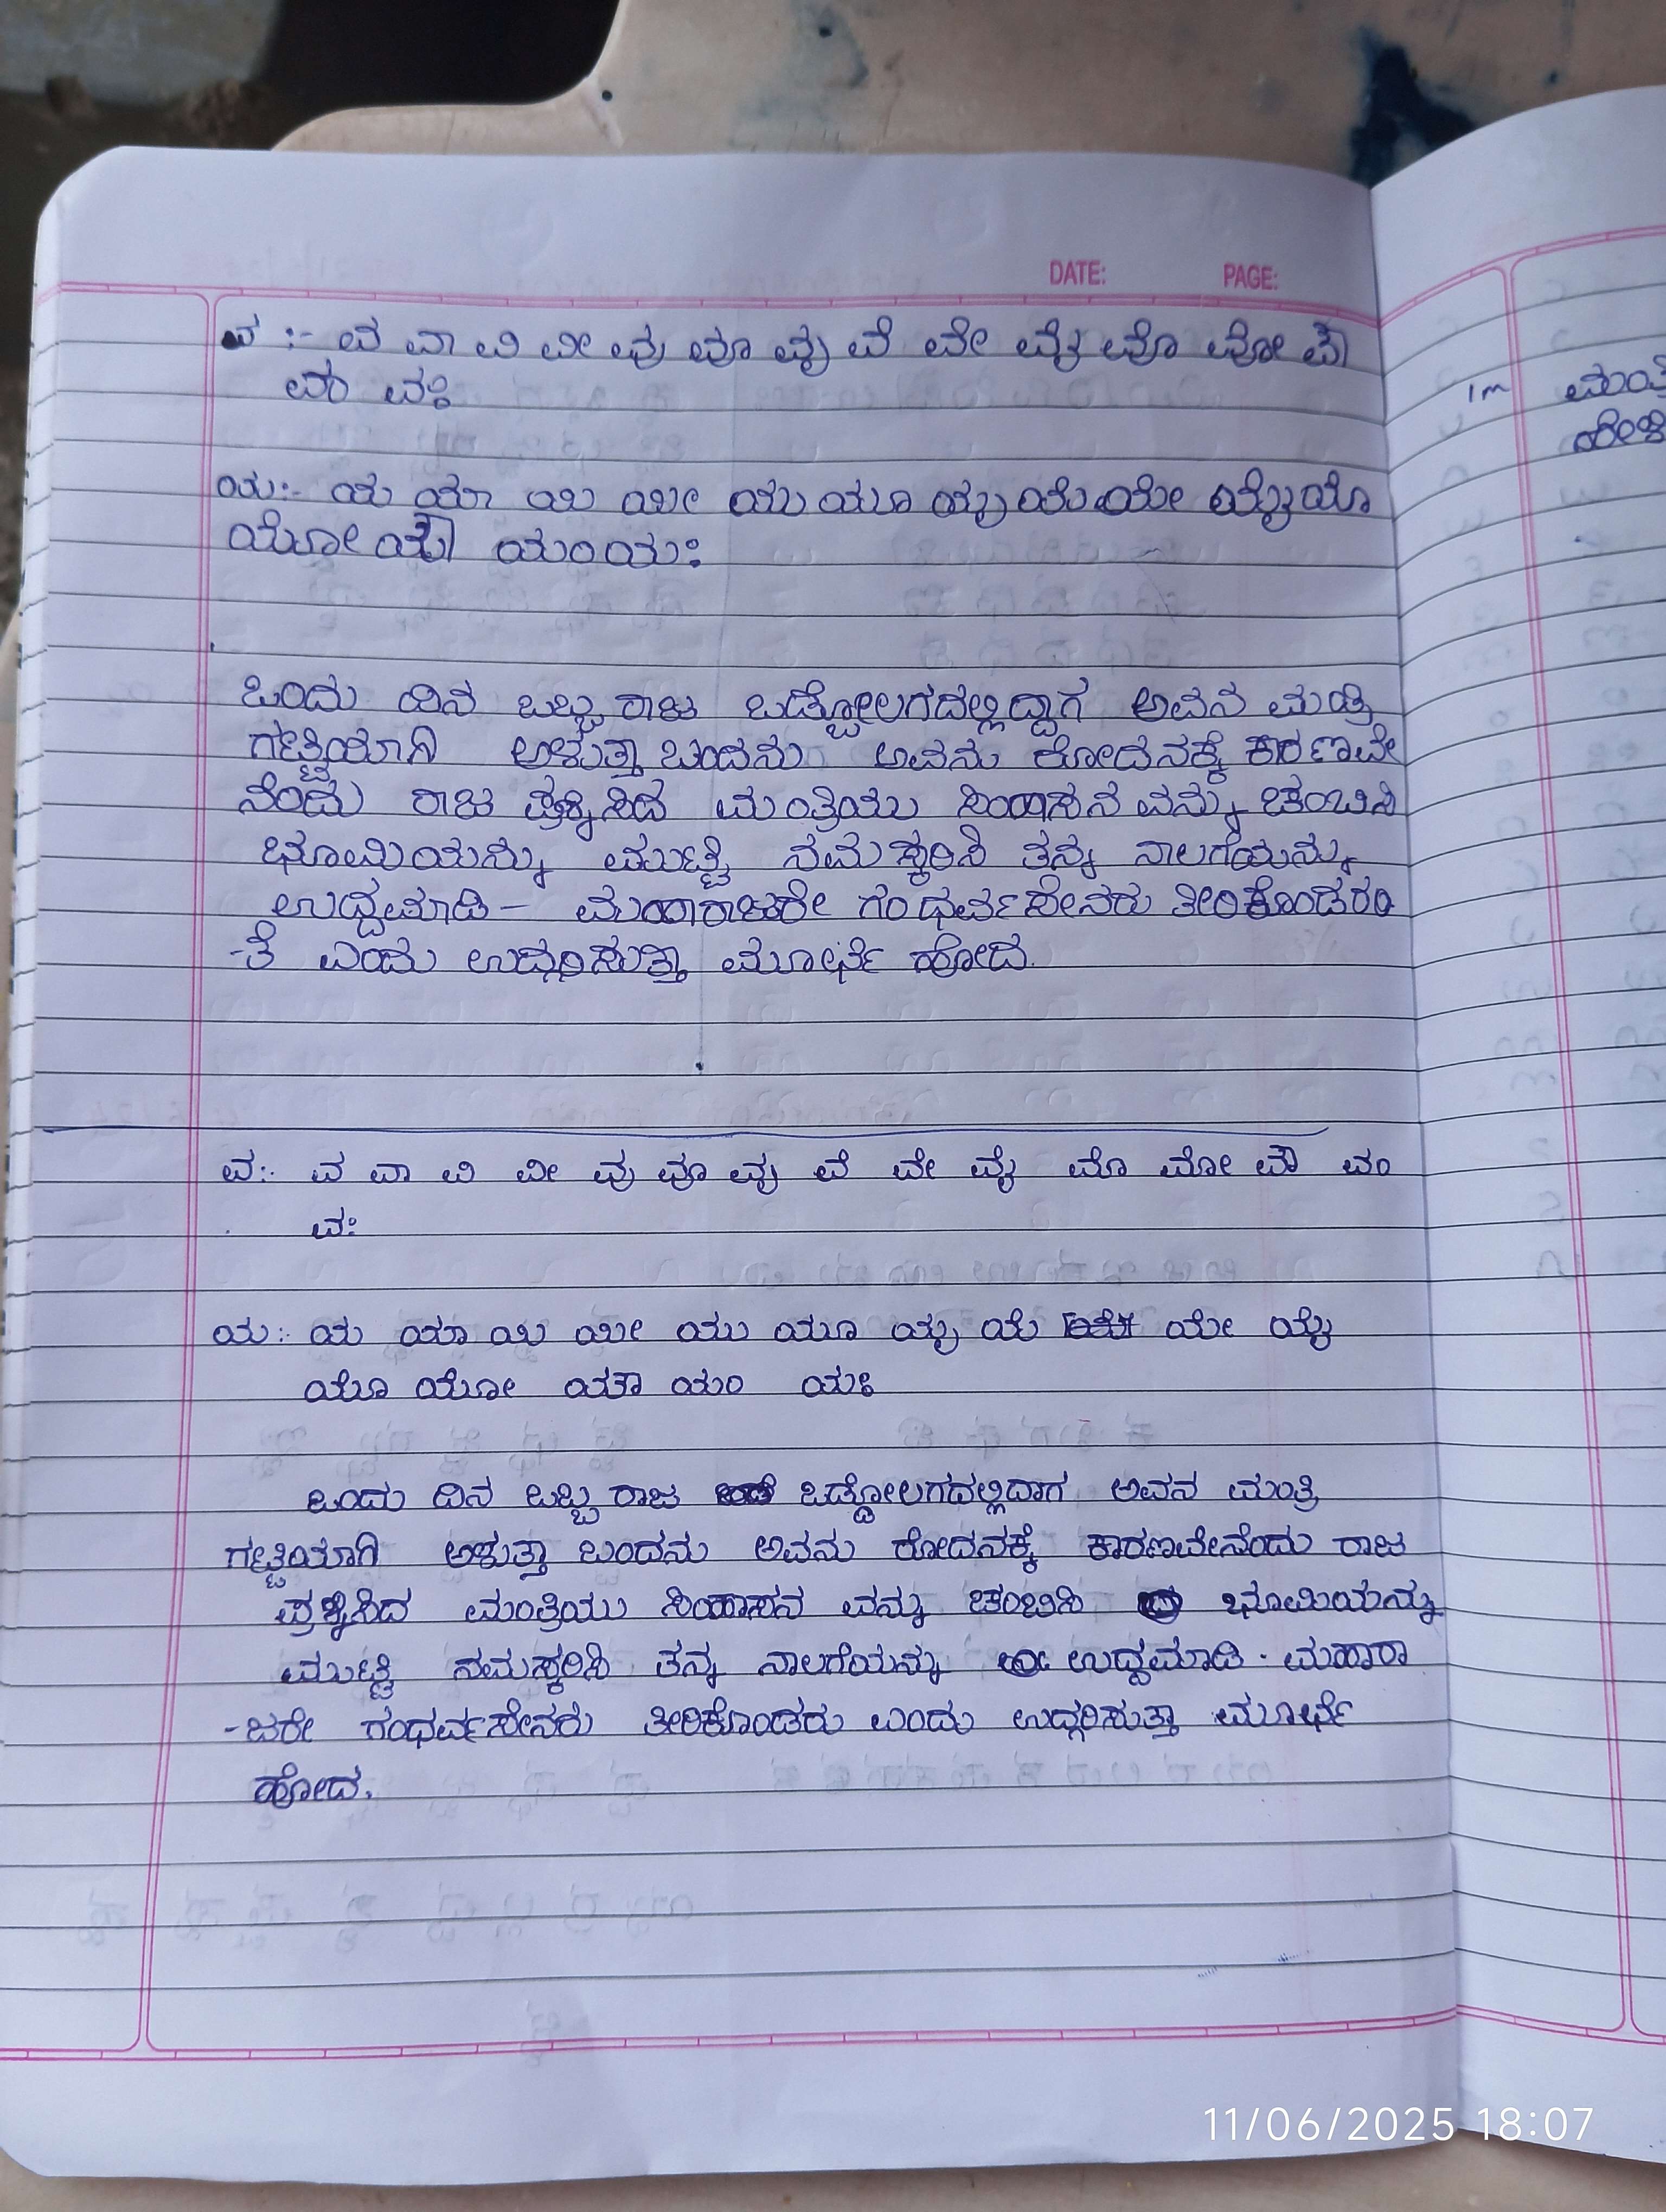 DATE: PAGE:
ವ :- ವ ವಾ ವಿ ವೀ ವು ವೂ ವೃ ವೆ ವೇ ವೈ ವೊ ವೋ ವೌ
ವಂ ವಃ
ಯ:- ಯ ಯಾ ಯಿ ಯೀ ಯು ಯೂ ಯೃ ಯೆ ಯೇ ಯೈ ಯೊ
ಯೋ ಯೌ ಯಂ ಯಃ
ಒಂದು ದಿನ ಒಬ್ಬ ರಾಜ ಒಡ್ಡೋಲಗದಲ್ಲಿದ್ದಾಗ ಅವನ ಮಂತ್ರಿ
ಗಟ್ಟಿಯಾಗಿ ಅಳುತ್ತಾ ಬಂದನು ಅವನು ರೋದನಕ್ಕೆ ಕಾರಣವೇ
ನೆಂದು ರಾಜ ಪ್ರಶ್ನಿಸಿದ ಮಂತ್ರಿಯು ಸಿಂಹಾಸನ ವನ್ನು ಚಂಬಿಸಿ
ಭೂಮಿಯನ್ನು ಮುಟ್ಟಿ ನಮಸ್ಕರಿಸಿ ತನ್ನ ನಾಲಗೆಯನ್ನು
ಉದ್ದಮಾಡಿ - ಮಹಾರಾಜರೇ ಗಂಧರ್ವಸೇನರು ತೀರಿಕೊಂಡರಂ
-ತೆ ಎಂದು ಉದ್ಗರಿಸುತ್ತಾ ಮೂರ್ಛೆ ಹೋದ.
ವ:- ವ ವಾ ವಿ ವೀ ವು ವೂ ವೃ ವೆ ವೇ ವೈ ವೊ ವೋ ವೌ ವಂ
ವಃ
ಯ:- ಯ ಯಾ ಯಿ ಯೀ ಯು ಯೂ ಯೃ ಯೆ ಯೇ ಯೈ
ಯೊ ಯೋ ಯೌ ಯಂ ಯಃ
ಒಂದು ದಿನ ಒಬ್ಬ ರಾಜ ಒಡ್ಡೋಲಗದಲ್ಲಿದಾಗ ಅವನ ಮಂತ್ರಿ
ಗಟ್ಟಿಯಾಗಿ ಅಳುತ್ತಾ ಬಂದನು ಅವನು ರೋದನಕ್ಕೆ ಕಾರಣವೇನೆಂದು ರಾಜ
ಪ್ರಶ್ನಿಸಿದ ಮಂತ್ರಿಯು ಸಿಂಹಾಸನ ವನ್ನು ಚಂಬಿಸಿ ಭೂಮಿಯನ್ನು
ಮುಟ್ಟಿ ನಮಸ್ಕರಿಸಿ ತನ್ನ ನಾಲಗೆಯನ್ನು ಉದ್ದಮಾಡಿ . ಮಹಾರಾ
-ಜರೇ ಗಂಧರ್ವಸೇನರು ತೀರಿಕೊಂಡರು ಎಂದು ಉದ್ಗರಿಸುತ್ತಾ ಮೂರ್ಛೆ
ಹೋದ.
1m
11/06/2025 18:07